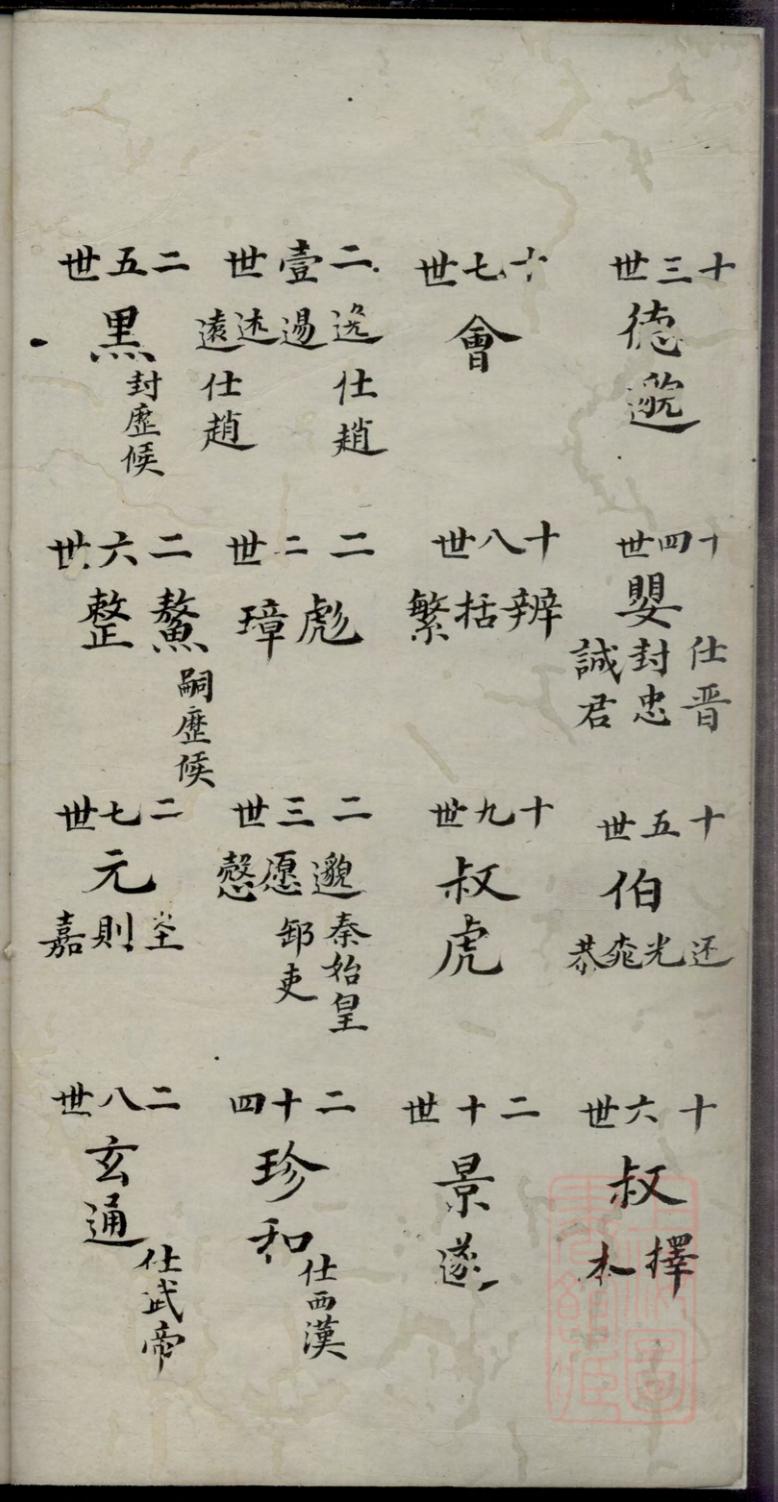 十三世
德邈
十四世
嬰
仕晋
封忠
誠君
十五世
伯
还光恭
十六世
叔
擇本
十七世
會
十八世
辨括繁
十九世
叔虎
二十世
景遂
二壹世
逷述遠
仕趙
仕趙
二二世
彪璋
二三世
邈愿愨
秦始皇
郎吏
二十四
珍和
仕西漢
二五世
黑
封歷候
二六世
鰲整
嗣歷候
二七世
元
則嘉
二八世
玄通
仕武帝